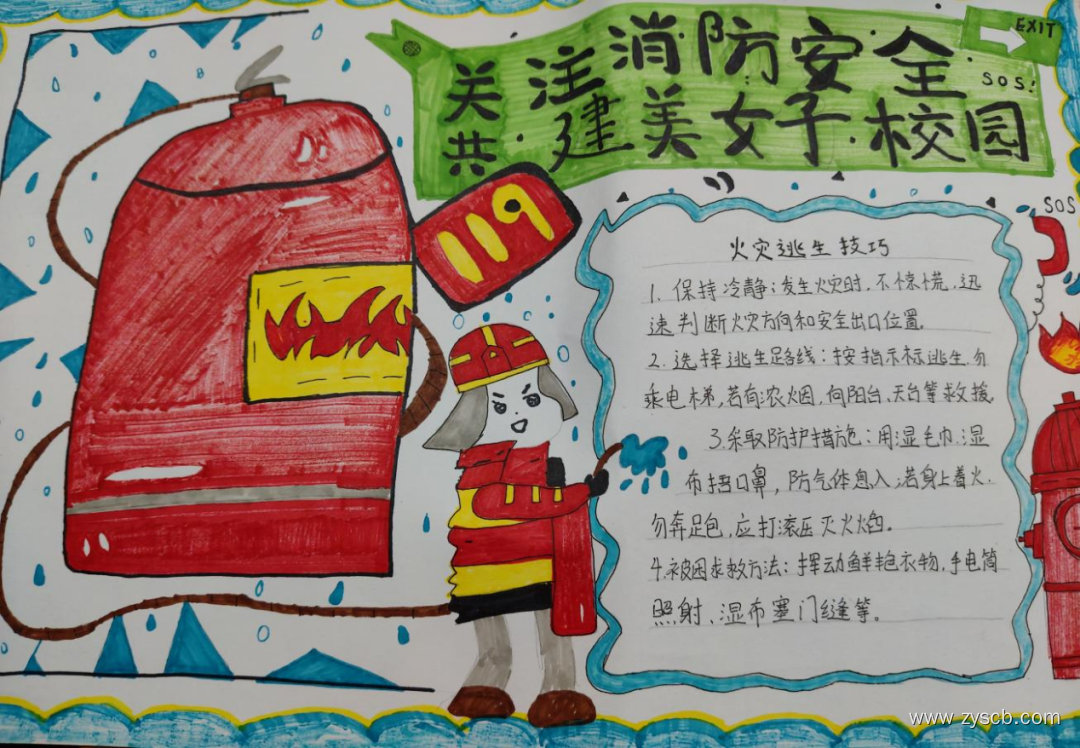 关注消防安全
共建美女子校园
EXIT
SOS!
119
SOS
火灾逃生技巧
1. 保持冷静:发生火灾时,不惊慌,迅
速判断火灾方向和安全出口位置。
2.选择逃生路线:按指示标逃生,勿
乘电梯,若有浓烟,向阳台、天台等救援。
3.采取防护措施:用湿毛巾、湿
布捂口鼻,防气体息入;若身上着火,
勿奔跑,应打滚压灭火焰。
4.被困求救方法:挥动鲜艳衣物,手电筒
照射、湿布塞门缝等。
www.zyscb.com